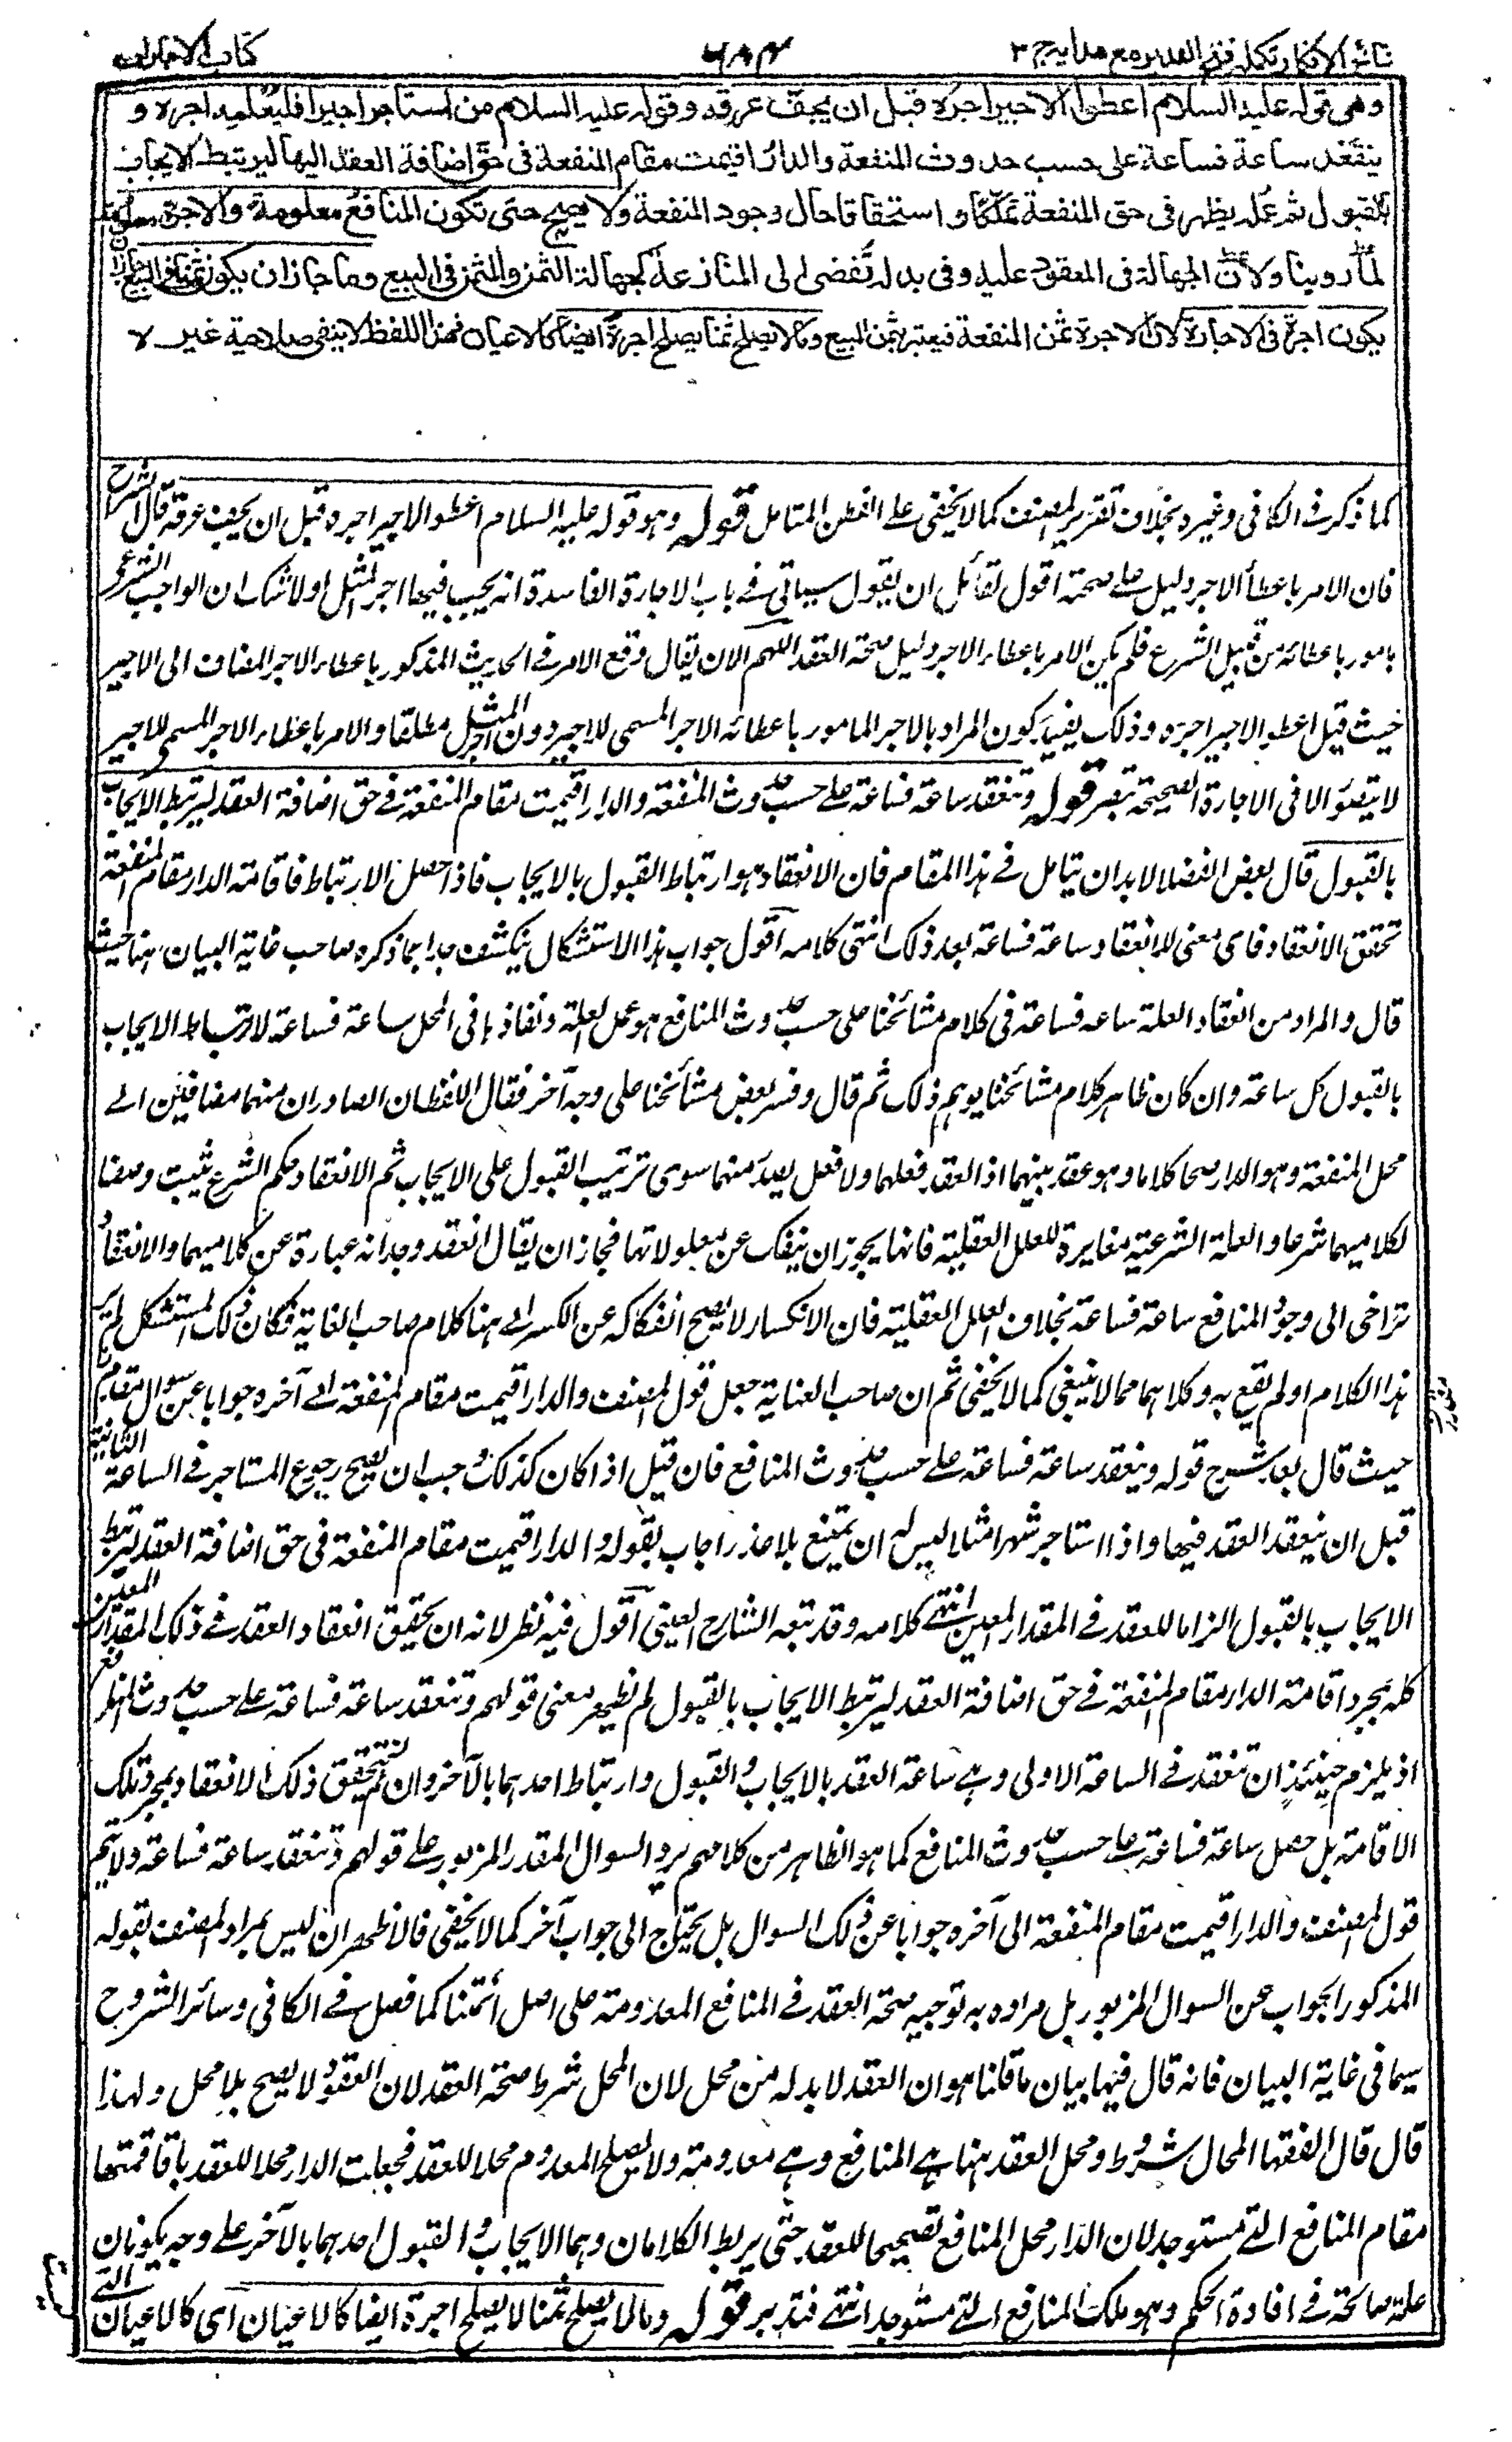 نتائج الافكار تكملة فتح القدير مع هداية ج ٣
كتاب الاجارات
وهي قوله عليه السلام اعطوا الاجير اجره قبل ان يجف عرقه وقوله عليه السلام من استاجر اجيرا فليعلمه اجره و
ينعقد ساعة فساعة على حسب حدوث المنفعة والدار اقيمت مقام المنفعة في حق اضافة العقد اليها ليرتبط الايجاب
بالقبول ثم عمله يظهر في حق المنفعة تملكا و استحقاقا حال وجود المنفعة ولا يصح حتى تكون المنافع معلومة والاجرة معلومة
لما روينا ولان الجهالة في المعقود عليه وفي بدله تفضى الى المنازعة كجهالة الثمن والمثمن في البيع وما جاز ان يكون ثمنا في البيع جاز ان
يكون اجرة في الاجارة لان الاجرة ثمن المنفعة فيعتبر بثمن المبيع وما لا يصلح ثمنا يصلح اجرة ايضا كالاعيان فهذا اللفظ لا ينفى صلاحية غيره لا
كما ذكر في الكافي وغيره بخلاف تقرير المصنف كما لا يخفى على الفطن المتامل قوله وهو قوله عليه السلام اعطوا الاجير اجره قبل ان يجف عرقه قال الشراح
فان الامر باعطاء الاجر دليل على صحته اقول لقائل ان يقول سياتي في باب الاجارة الفاسدة انه يجب فيها اجر المثل ولا شك ان الواجب الشرعى
مامور باعطائه من قبل الشرع فلم يكن الامر باعطاء الاجر دليل صحة العقد اللهم الا ان يقال وقع الامر في الحديث المذكور باعطاء الاجر المضاف الى الاجير
حيث قيل اعطوا الاجير اجره وذلك يفيد كون المراد بالاجر المامور باعطائه الاجر المسمى للاجير دون اجر المثل مطلقا والامر باعطاء الاجر المسمى للاجير
لا يتصور الا في الاجارة الصحيحة تبصر قوله وتنعقد ساعة فساعة على حسب حدوث المنفعة والدار اقيمت مقام المنفعة في حق اضافة العقد ليرتبط الايجاب
بالقبول قال بعض الفضلا لا بد ان يتامل في هذا المقام فان الانعقاد هو ارتباط القبول بالايجاب فاذا حصل الارتباط فاقامة الدار مقام المنفعة
تحقق الانعقاد فاى معنى للانعقاد ساعة فساعة بعد ذلك انتهى كلامه اقول جواب هذا الاستشكال ينكشف جدا بما ذكره صاحب غاية البيان هنا حيث
قال والمراد من انعقاد العلة ساعة فساعة في كلام مشائخنا على حسب حدوث المنافع هو عمل العلة ونفاذها في المحل ساعة فساعة لا ارتباط الايجاب
بالقبول كل ساعة وان كان ظاهر كلام مشائخنا يوهم ذلك ثم قال وفسر بعض مشائخنا على وجه آخر فقال اللفظان الصادران منهما مضافين الى
محل المنفعة وهو الدار صحا كلاما وهو عقد بينهما اذ العقد فعلهما ولا فعل يصدر منهما سوى ترتيب القبول على الايجاب ثم الانعقاد حكم الشرع ثبت وصفا
لكلاميهما شرعا والعلة الشرعية مغايرة للعلل العقلية فانها يجوز ان ينفك عن معلولاتها فجاز ان يقال انعقد وجدانه عبارة عن كلاميهما والانعقاد
تراخى الى وجود المنافع ساعة فساعة بخلاف العلل العقلية فان الانكسار لا يصح انفكاكه عن الكسر الى هنا كلام صاحب الغاية فكان ذلك المستشكل لم ير
هذا الكلام او لم يقنع به وكلاهما مما لا ينبغى كما لا يخفى ثم ان صاحب العناية جعل قول المصنف والدار اقيمت مقام المنفعة الى آخره جوابا عن سوال مقدر
حيث قال بعد شرح قوله وينعقد ساعة فساعة على حسب حدوث المنافع فان قيل اذا كان كذلك وجب ان يصح رجوع المستاجر في الساعة الثانية
قبل ان ينعقد العقد فيها واذا استاجر شهرا مثلا ليس له ان يمتنع بلا عذر اجاب بقوله والدار اقيمت مقام المنفعة في حق اضافة العقد ليرتبط
الايجاب بالقبول الزاما للعقد في المقدار المعين انتهى كلامه وقد تبعه الشارح العيني اقول فيه نظر لانه ان تحقق انعقاد العقد في ذلك المقدار المعين
كله بمجرد اقامة الدار مقام المنفعة في حق اضافة العقد ليرتبط الايجاب بالقبول لم يظهر معنى قولهم وتنعقد ساعة فساعة على حسب حدوث المنافع
اذ يلزم حينئذ ان تنعقد في الساعة الاولى وهي ساعة العقد بالايجاب والقبول وارتباط احدهما بالآخر وان لم يتحقق ذلك الانعقاد بمجرد تلك
الاقامة بل حصل ساعة فساعة على حسب حدوث المنافع كما هو الظاهر من كلامهم يرد السوال المقدر المزبور على قولهم وتنعقد ساعة فساعة ولا يتم
قول المصنف والدار اقيمت مقام المنفعة الى آخره جوابا عن ذلك السوال بل يحتاج الى جواب آخر كما لا يخفى فالاظهر ان ليس مراد المصنف بقوله
المذكور الجواب عن السوال المزبور بل مراده به توجيه صحة العقد في المنافع المعدومة على اصل ائمتنا كما فصل في الكافي وسائر الشروح
سيما في غاية البيان فانه قال فيها بيان ما قلنا هو ان العقد لا بد له من محل لان المحل شرط صحة العقد لان العقود لا يصح بلا محل ولهذا
قال قال الفقهاء المحال شروط ومحل العقد هنا هي المنافع وهي معدومة ولا يصلح المعدوم محلا للعقد فجعلت الدار محلا للعقد باقامتها
مقام المنافع التي ستوجد لان الدار محل المنافع تصحيحا للعقد حتى يربط الكلامان وهما الايجاب والقبول احدهما بالآخر على وجه يكونان
علة صالحة في افادة الحكم وهو ملك المنافع التي ستوجد انتهى فتدبر قوله وما لا يصلح ثمنا لا يصلح اجرة ايضا كالاعيان اى كالاعيان التي